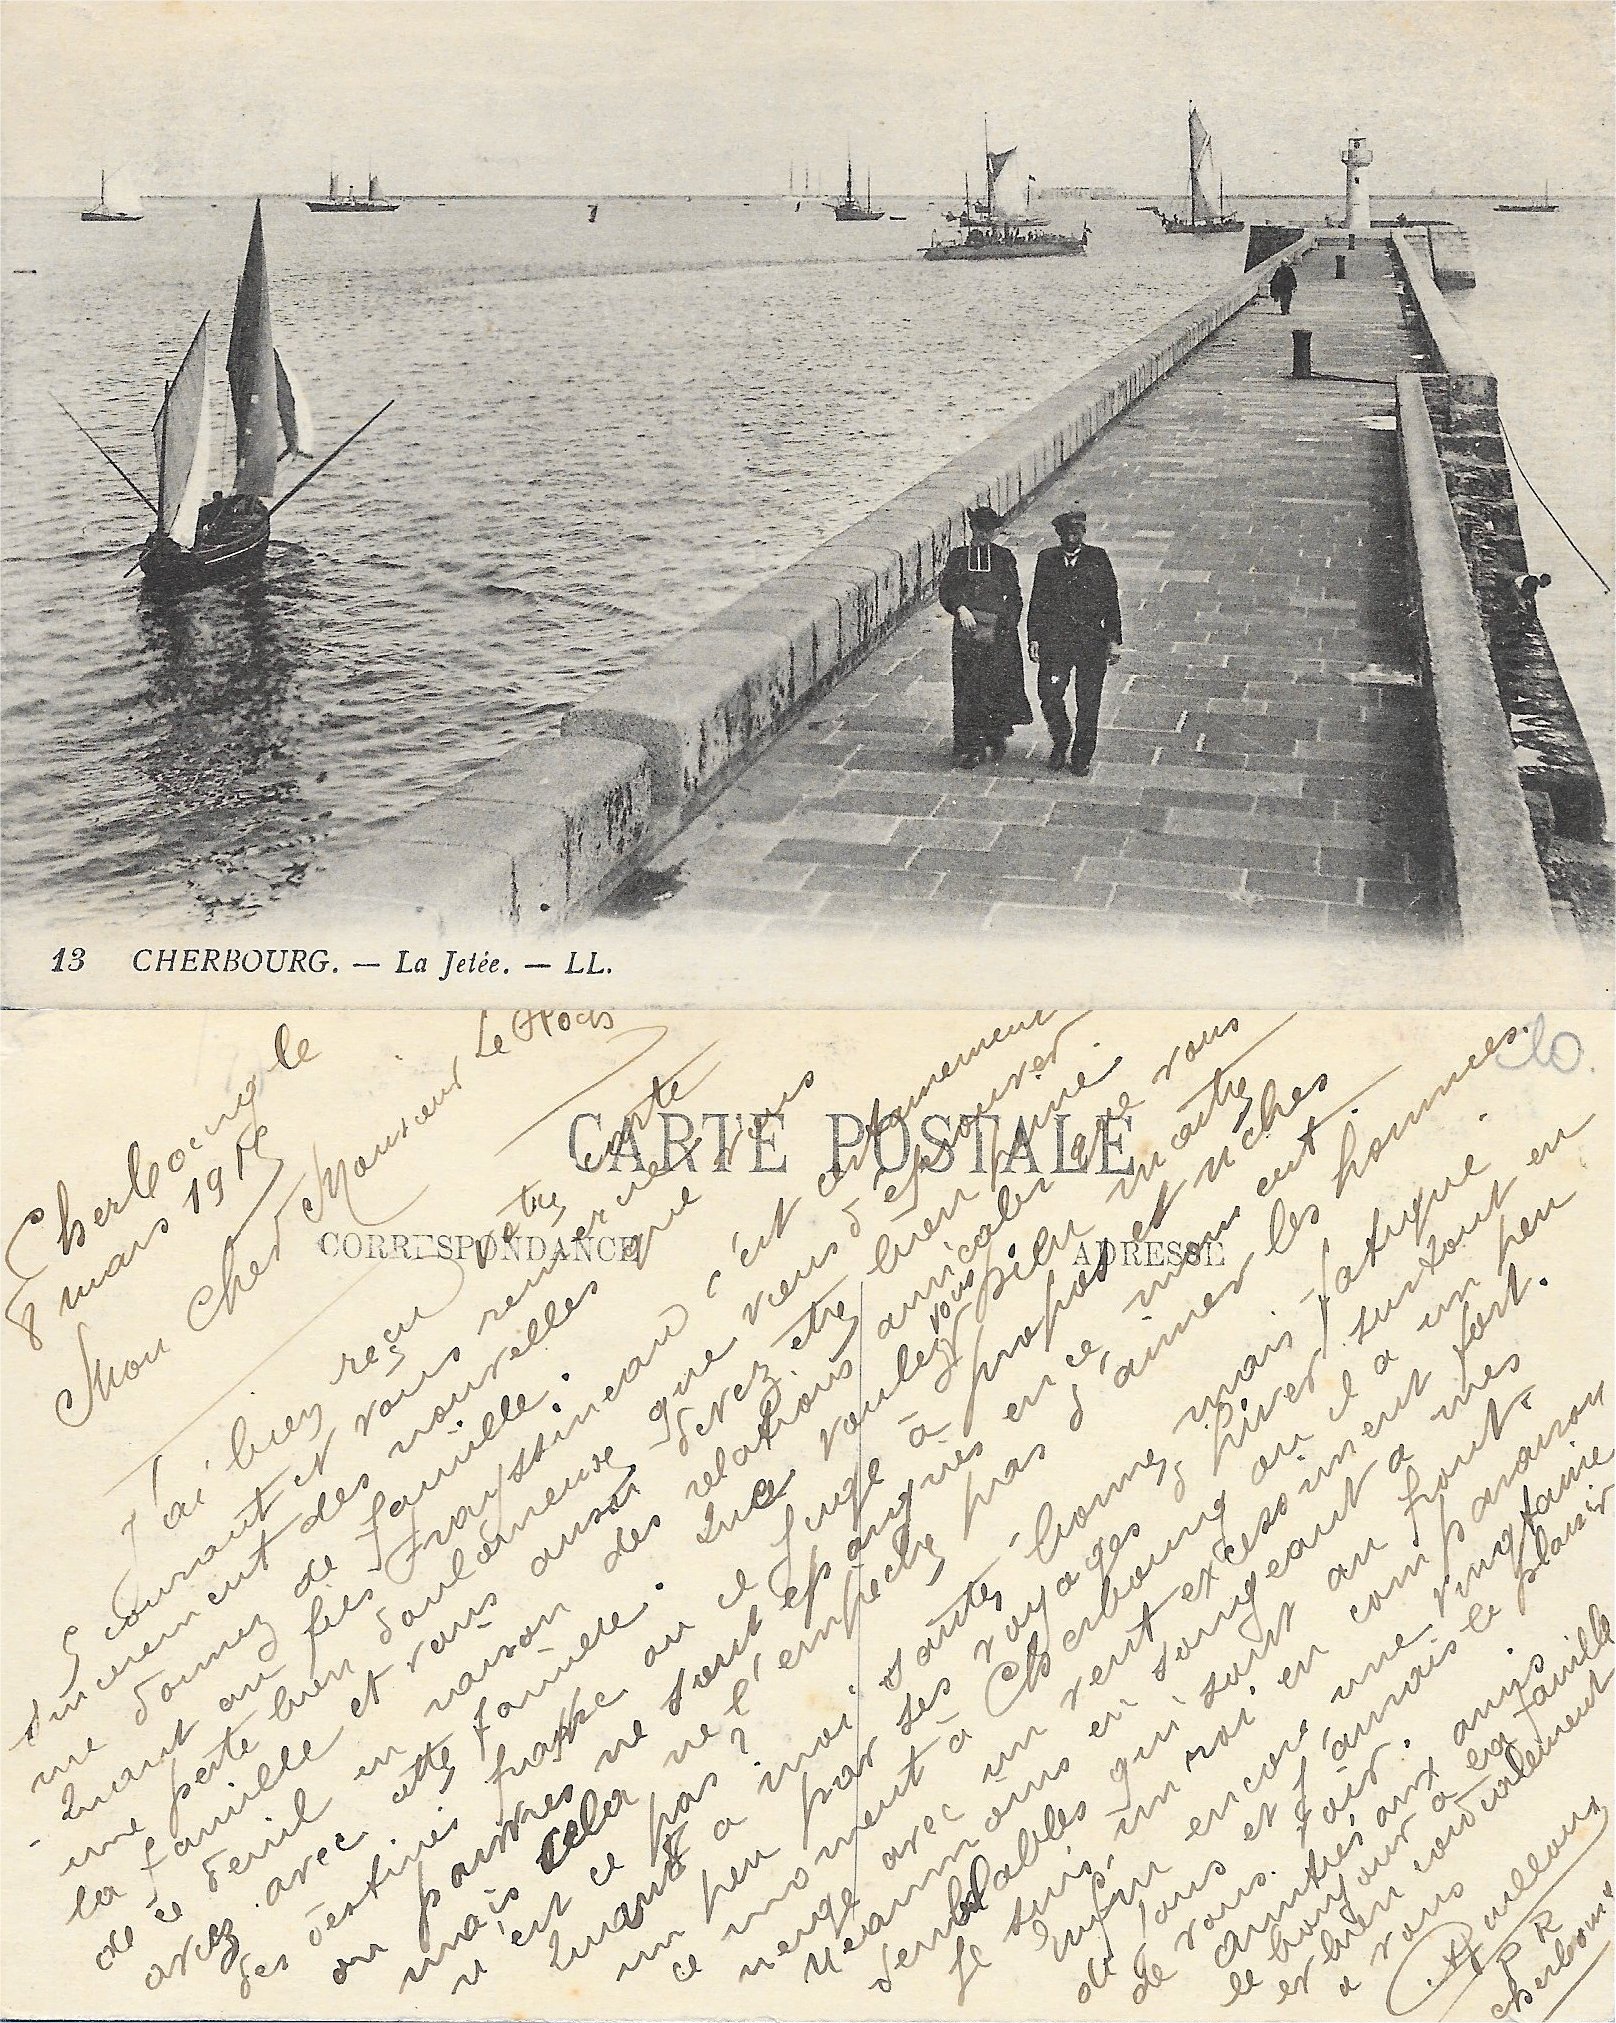 13 CHERBOURG. — La Jetée. — LL.
CARTE POSTALE
CORRESPONDANCE
ADRESSE
10.
Cherbourg le
8 mars 191
Mon Cher Monsieur Le
J'ai bien reçu votre carte
courant et vous remercie
sincerement des nouvelles que vous
me donnez de famille.
Quant au fils Frayssineau c'est certainement
une perte bien douloureuse que vient d'éprouver
la famille et vous aussi devez être bien peiné
de ce deuil en raison des relations amicales que vous
avez avec cette famille. Que voulez vous bien maitre
des destinés frappe ou ce juge à propos et riches
ou pauvres ne sont epargnés en ce moment.
mais cela ne l'empeche pas d'aimer les hommes.
n'est ce pas?
Quand a moi santé bonne, mais fatigué
un peu par les voyages d'hiver surtout en
ce moment à Cherbourg ou il a un peu
neigé avec un vent excessiment fort.
Neanmoins en songeant a mes
semblables qui sont au front.
Je suis un roi en comparaison
Enfin encore une vingtaine
de jours et j'aurais le plaisir
de vous voir.
Amitiés aux amis
le bonjour a la famille
et bien cordialement
a vous
Cherbourg